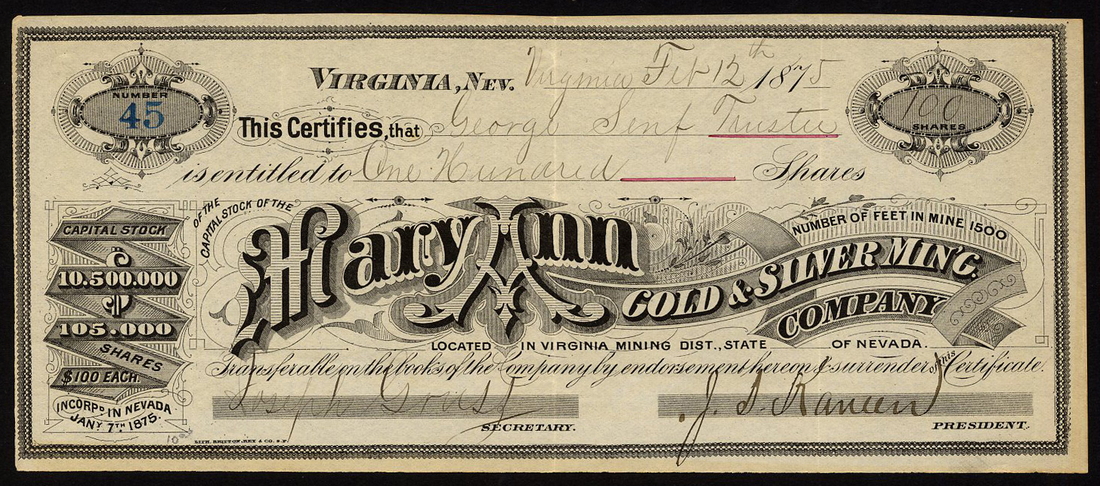 VIRGINIA, NEV. Virginia Feb 12th 1875
NUMBER
45
100
SHARES
This Certifies, that George Senf Trustee
is entitled to One Hundred Shares
OF THE
CAPITAL STOCK OF THE
Mary Ann
NUMBER OF FEET IN MINE 1500
GOLD & SILVER MING.
COMPANY
LOCATED IN VIRGINIA MINING DIST., STATE OF NEVADA.
Transferable on the books of the Company by endorsement hereon & surrender of this Certificate.
CAPITAL STOCK
10.500.000
105.000
SHARES
$100 EACH.
INCORPD IN NEVADA
JANY 7TH 1875.
Joseph
SECRETARY.
J. S.
PRESIDENT.
LITH. BRITTON, REY & CO. S.F.